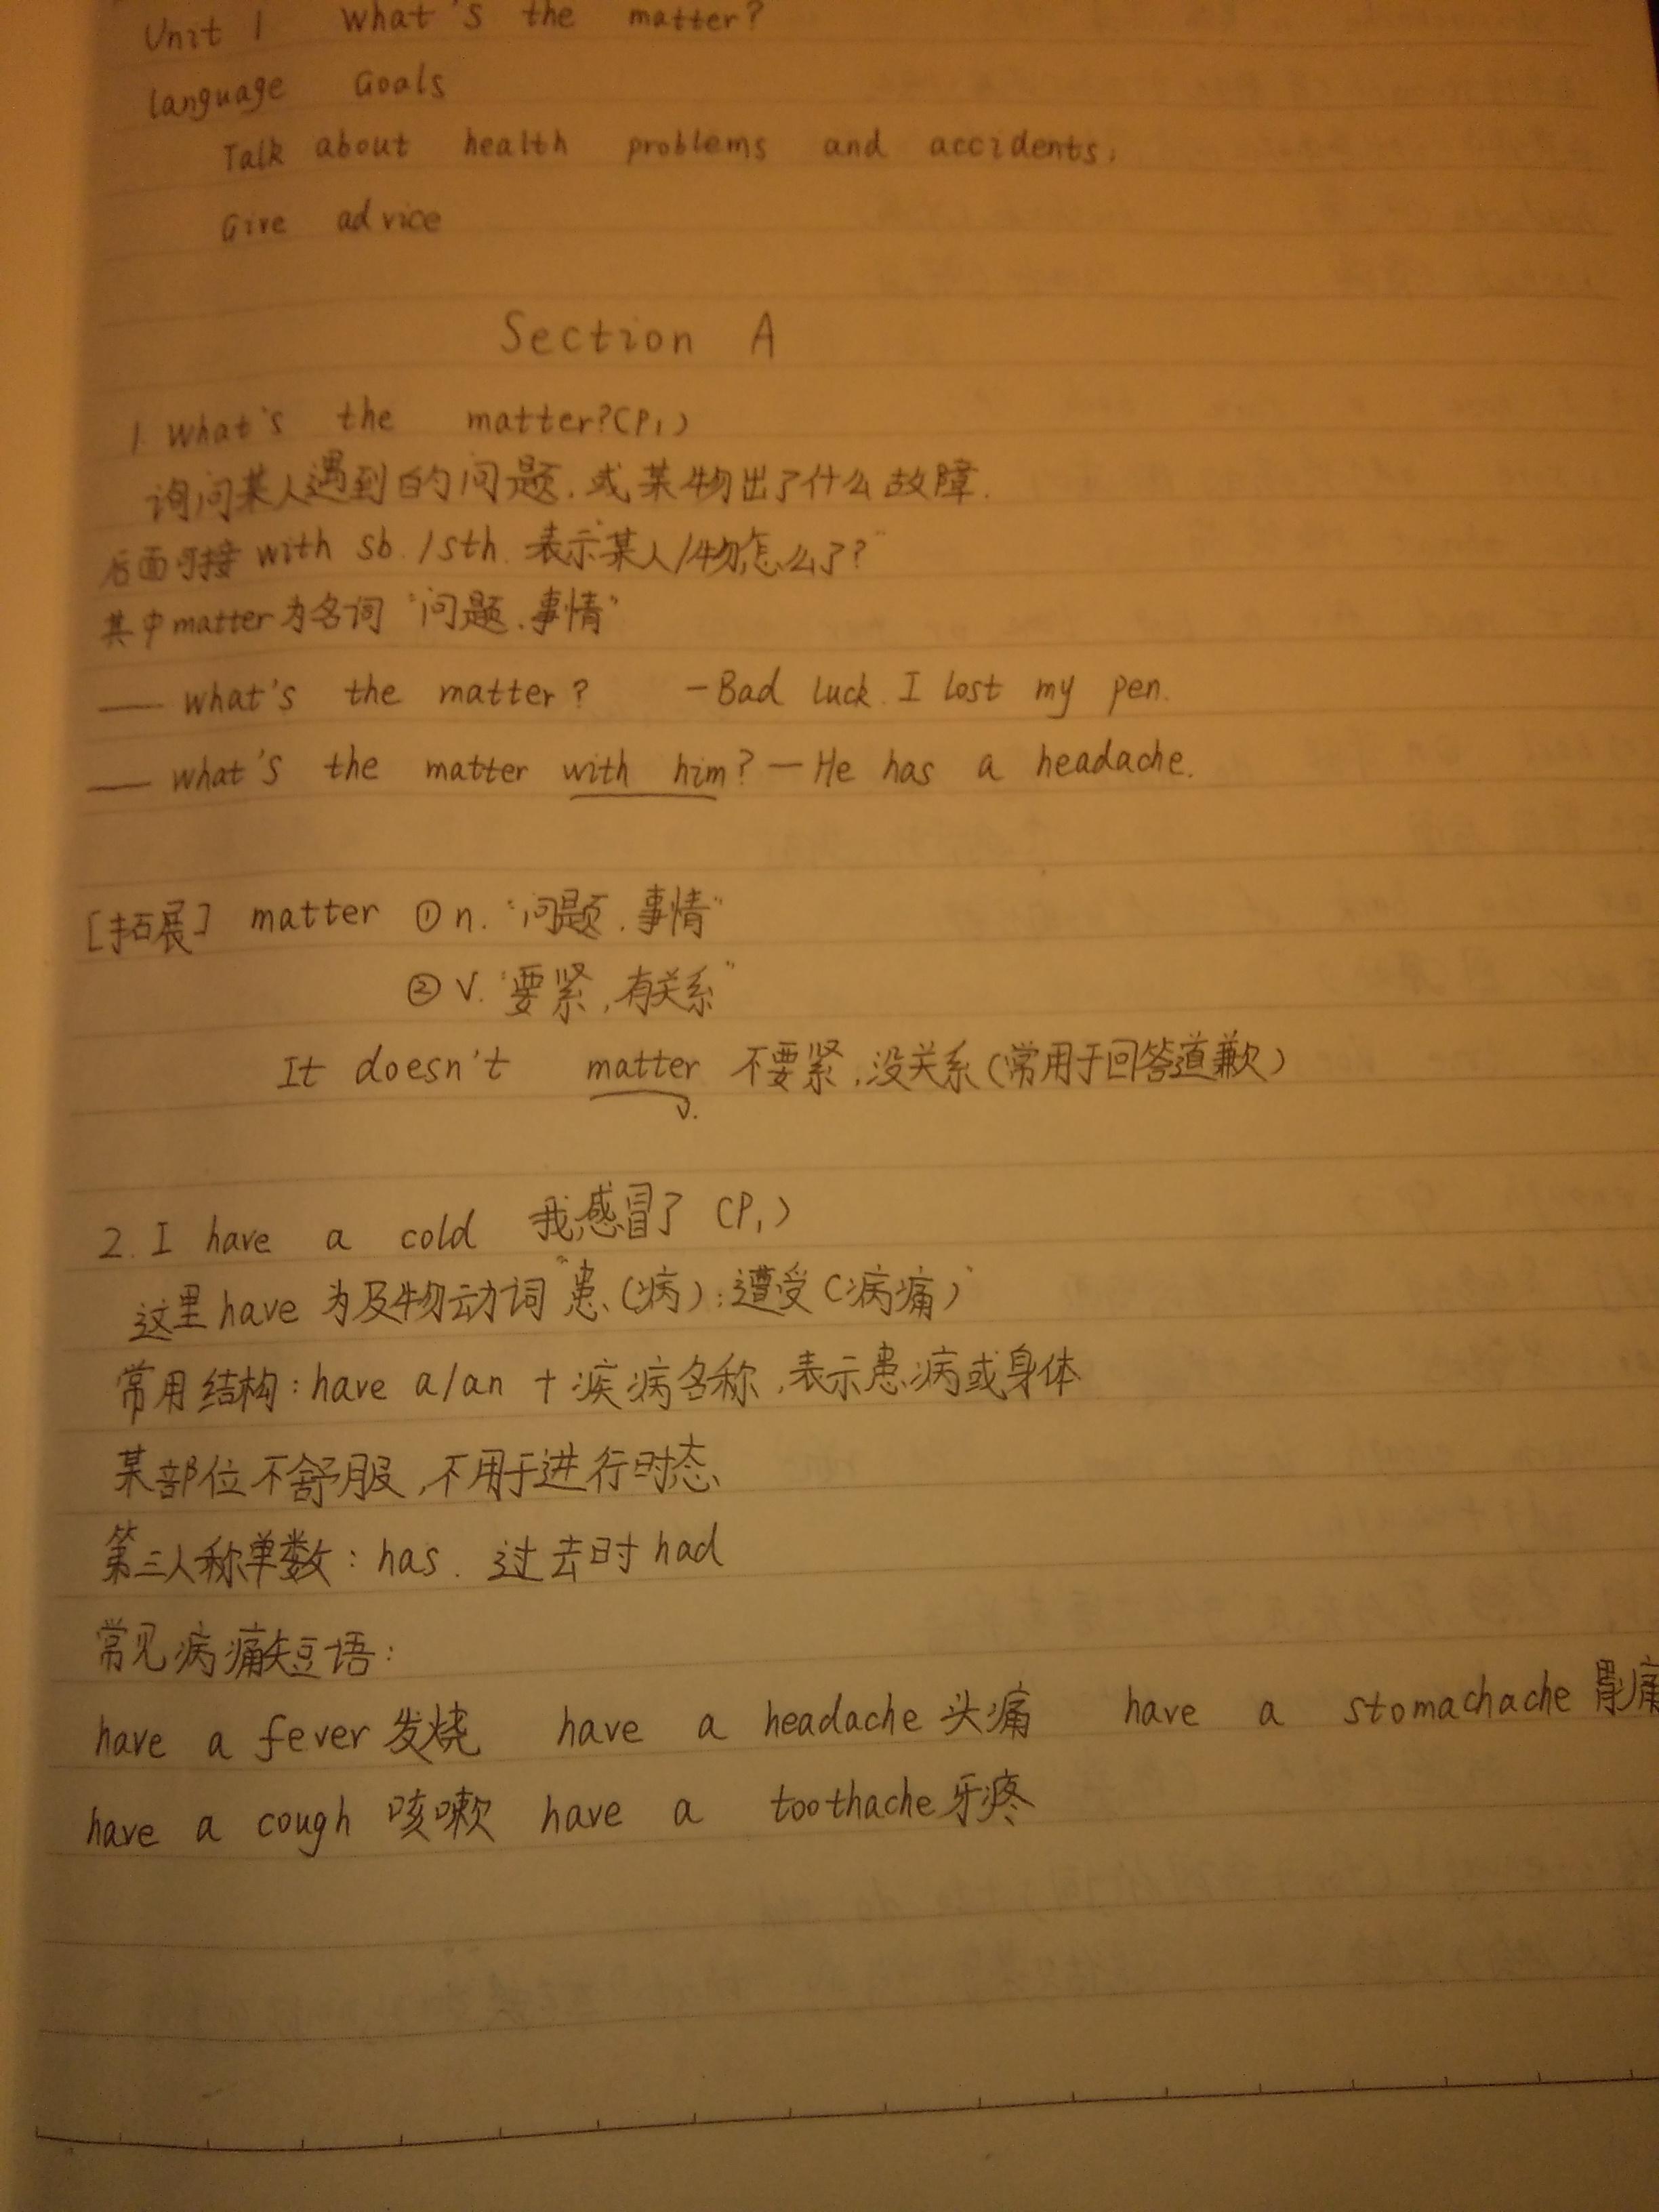 Unit 1 What's the matter?
language Goals
Talk about health problems and accidents.
Give advice
Section A
1. What's the matter?(P1)
询问某人遇到的问题.或某物出了什么故障.
后面可接 with sb./sth. 表示"某人/物怎么了?"
其中matter为名词"问题.事情"
—— what's the matter? -Bad luck. I lost my pen.
—— what's the matter with him? — He has a headache.
[拓展] matter ①n."问题.事情"
②v."要紧,有关系"
It doesn't matter 不要紧,没关系(常用于回答道歉)
v.
2. I have a cold 我感冒了 (P1)
这里have 为及物动词"患(病);遭受(病痛)"
常用结构:have a/an + 疾病名称,表示患病或身体
某部位不舒服,不用于进行时态
第三人称单数:has. 过去时had
常见病痛短语:
have a fever 发烧 have a headache 头痛 have a stomachache 胃痛
have a cough 咳嗽 have a toothache 牙疼